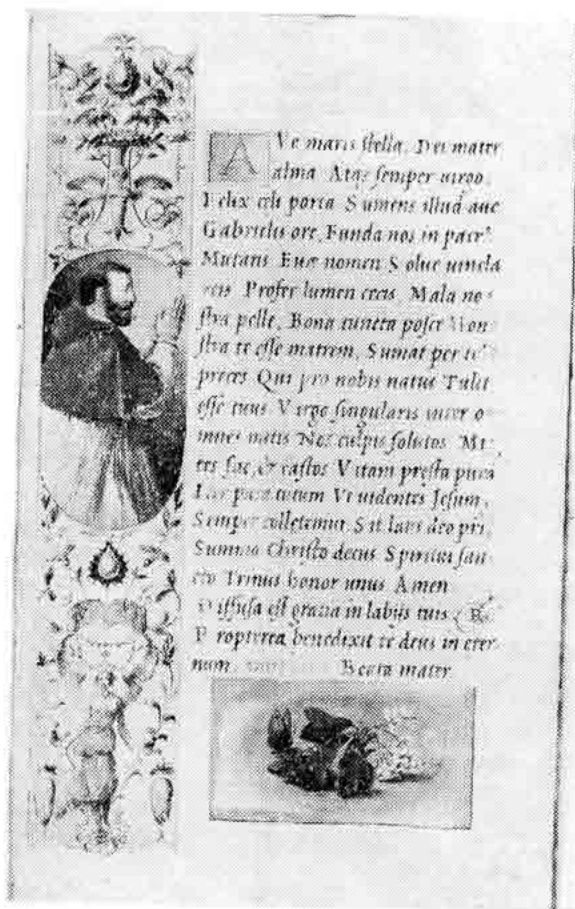 AVe maris stella, Dei mater
alma Atq; semper uirgo
Felix celi porta Sumens illud aue
Gabrielis ore, Funda nos in pace
Mutans Euæ nomen Solue uincla
reis Profer lumen cecis, Mala no-
stra pelle, Bona cuncta posce Mon-
stra te esse matrem, Sumat per te
preces Qui pro nobis natus Tulit
esse tuus Virgo singularis inter o-
mnes mitis Nos culpis solutos Mi-
tes fac, & castos Vitam præsta purā
Iter para tutum Vt uidentes Jesum,
Semper colletemur Sit laus deo pri,
Summo Christo decus Spiritui san-
cto Trinus honor unus Amen
Diffusa est gratia in labijs tuis R.
Propterea benedixit te deus in eter-
num Beata mater